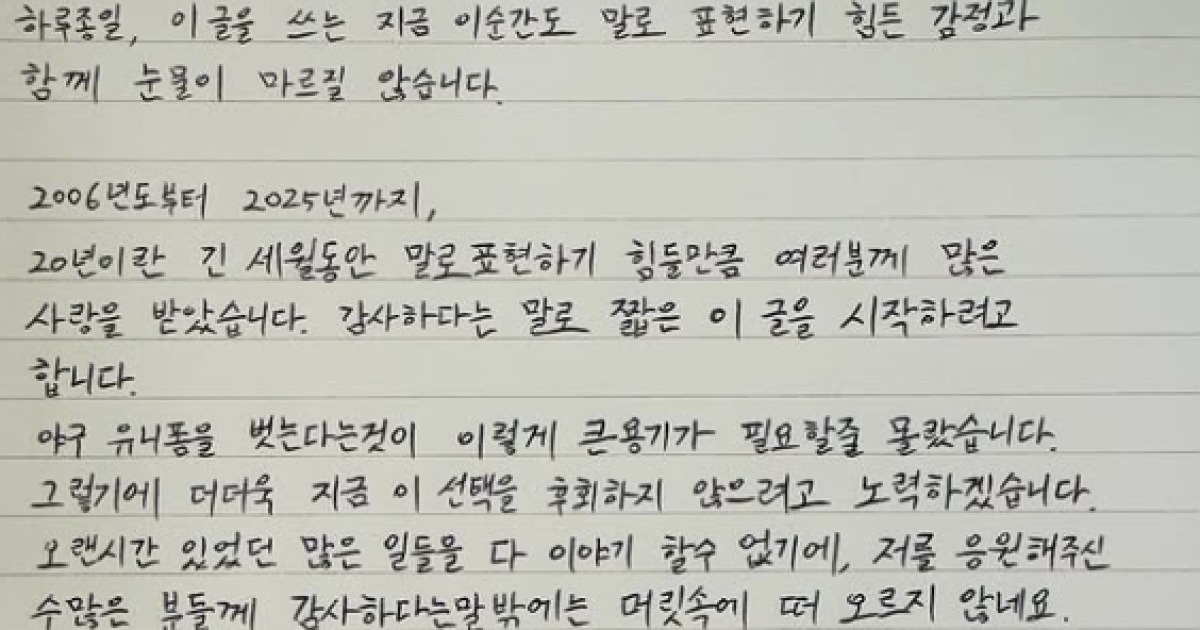 하루종일, 이 글을 쓰는 지금 이순간도 말로 표현하기 힘든 감정과
함께 눈물이 마르질 않습니다.
2006년도부터 2025년까지,
20년이란 긴 세월동안 말로 표현하기 힘들만큼 여러분께 많은
사랑을 받았습니다. 감사하다는 말로 짧은 이 글을 시작하려고
합니다.
야구 유니폼을 벗는다는것이 이렇게 큰용기가 필요할줄 몰랐습니다.
그렇기에 더더욱 지금 이 선택을 후회하지 않으려고 노력하겠습니다.
오랜시간 있었던 많은 일들을 다 이야기 할수 없기에, 저를 응원해주신
수많은 분들께 감사하다는말밖에는 머릿속에 떠 오르지 않네요.